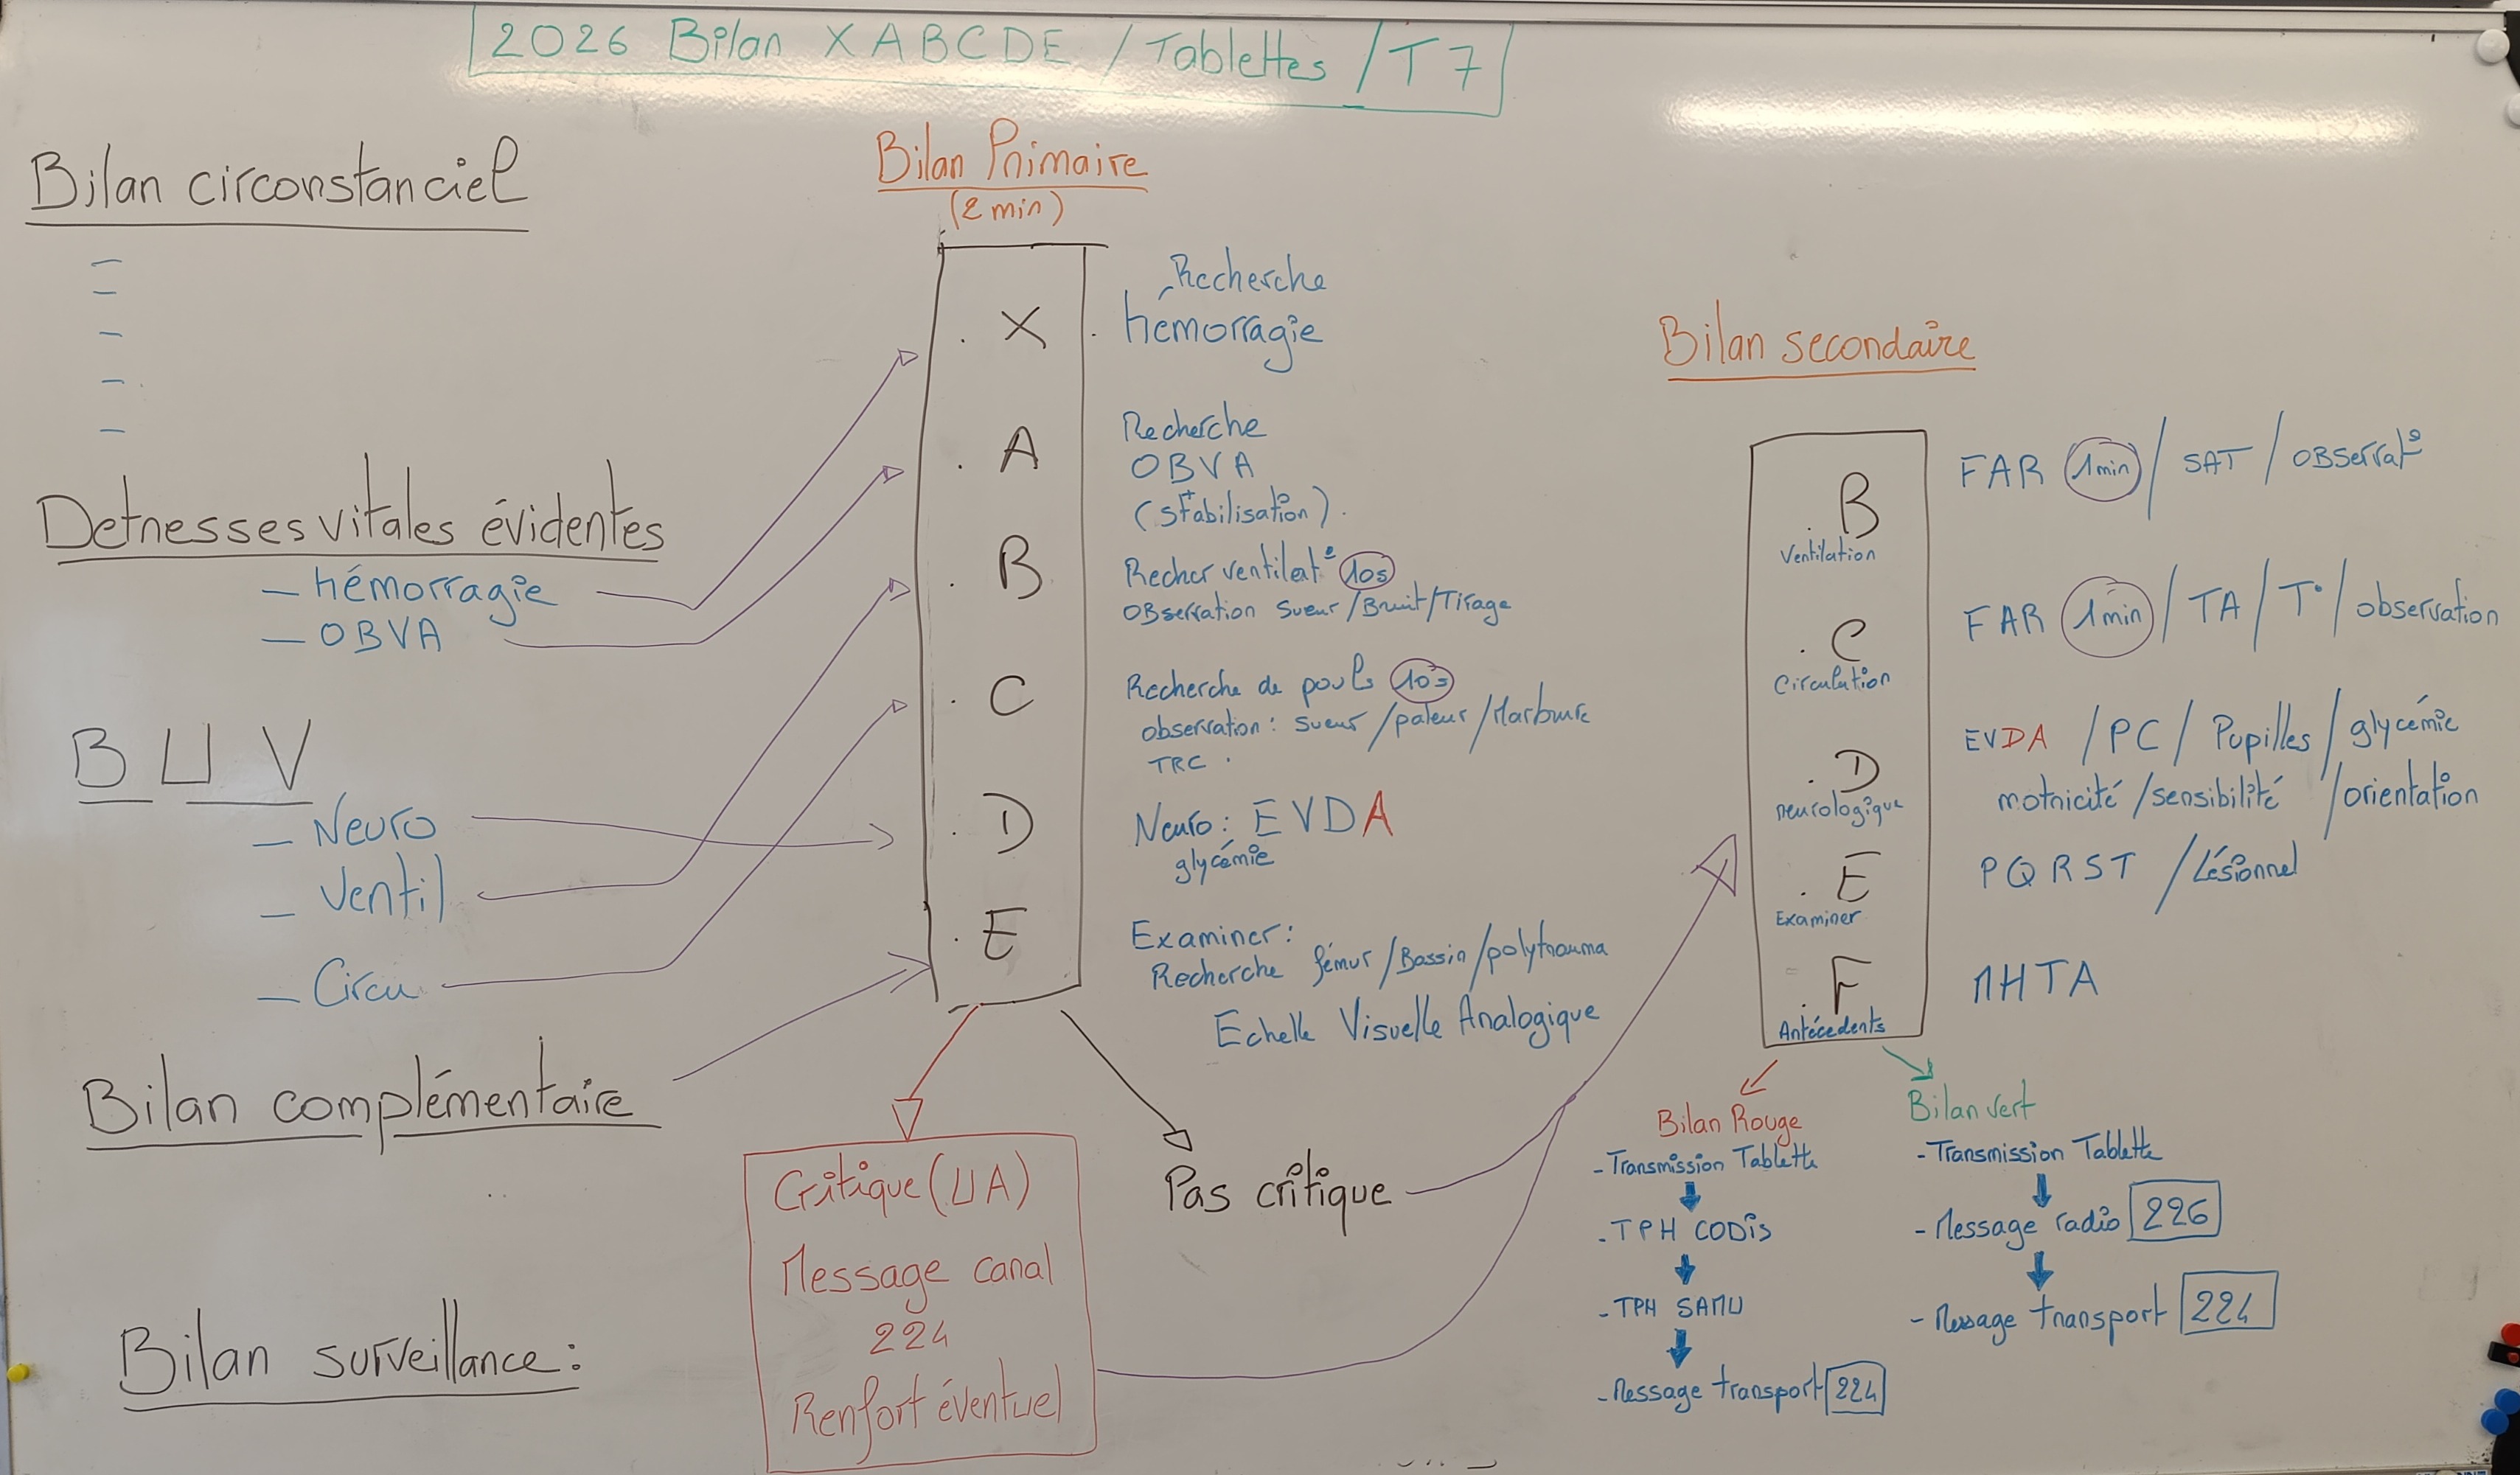 2026 Bilan XABCDE / Tablettes / T7
Bilan circonstanciel
–
–
–
–
–
Detresses vitales évidentes
– hémorragie
– OBVA
B U V
– Neuro
– Ventil
– Circu
Bilan complémentaire
Bilan surveillance :
Bilan Primaire
(2 min)
. X . Recherche
hémorragie
. A Recherche
OBVA
(stabilisation).
. B Recher ventilat° 10s
OBservation Sueur / Bruit / Tirage
. C Recherche de pouls 10s
observation : sueur / paleur / Marbrure
TRC .
. D Neuro : EVDA
glycémie
. E Examiner :
Recherche fémur / Bassin / polytrauma
Echelle Visuelle Analogique
Critique (UA)
Message canal
224
Renfort éventuel
Pas critique
Bilan secondaire
. B FAR 1min / SAT / OBservat°
Ventilation
. C FAR 1min / TA / T° / observation
Circulation
. D EVDA / PC / Pupilles / glycémie
neurologique motricité / sensibilité / orientation
. E PQRST / Lésionnel
Examiner
. F MHTA
Antécedents
Bilan Rouge
- Transmission Tablette
- TPH CODIS
- TPH SAMU
- Message transport 224
Bilan vert
- Transmission Tablette
- Message radio 226
- Message transport 224